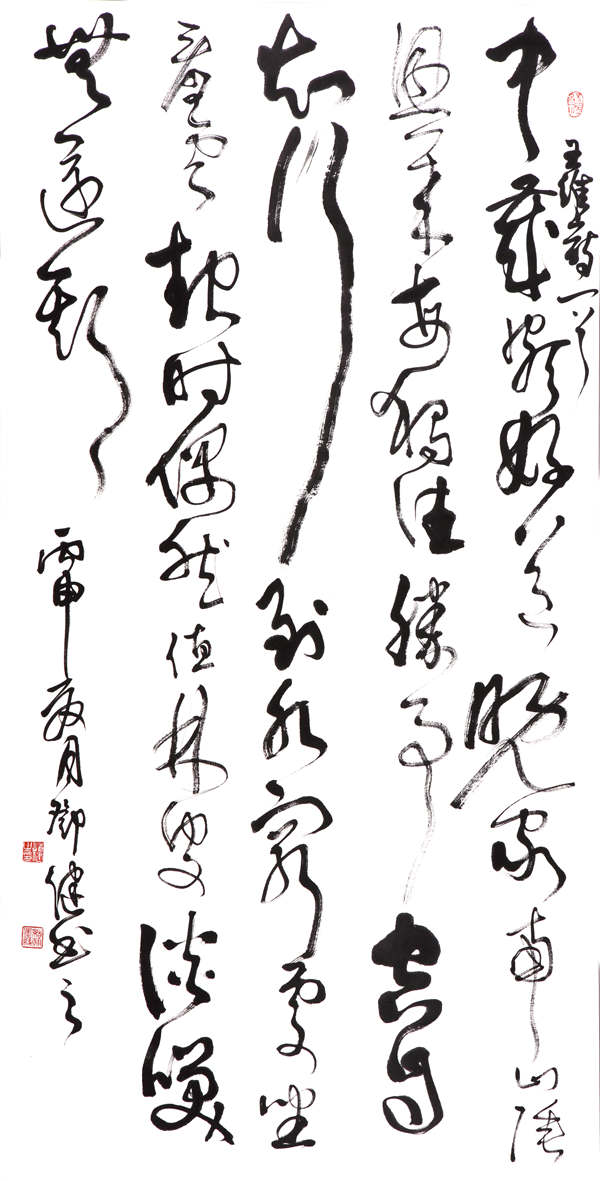 王維詩一首
中歲頗好道晚家南山陲
興來每獨往勝事空自
知行到水窮處坐
看雲起时偶然值林叟談笑
無還期
丙申夏月鄧健書之